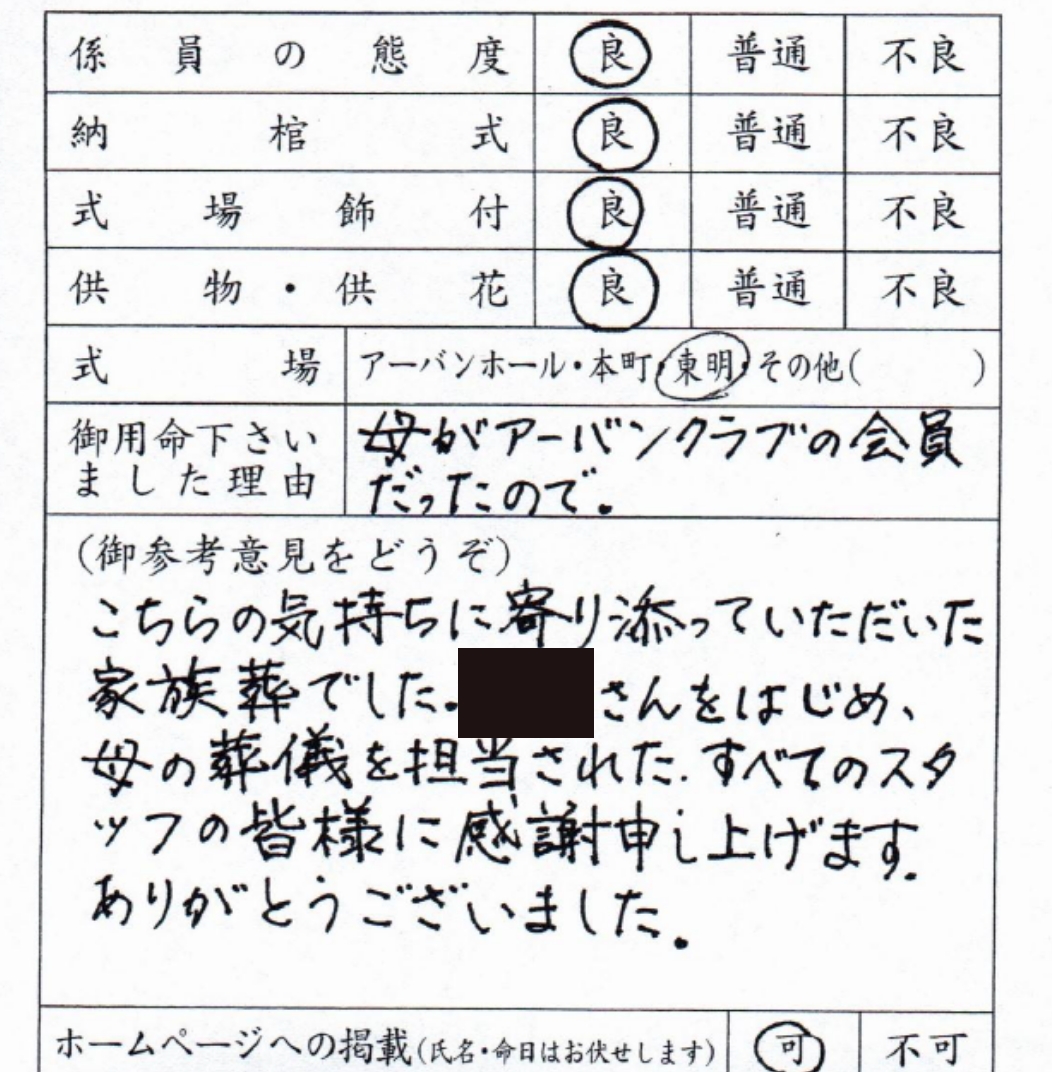 係員の態度 良 普通 不良
納棺式 良 普通 不良
式場飾付 良 普通 不良
供物・供花 良 普通 不良
式場 アーバンホール・本町・東明・その他( )
御用命下さい
ました理由
母がアーバンクラブの会員
だったので。
(御参考意見をどうぞ)
こちらの気持ちに寄り添っていただいた
家族葬でした。 さんをはじめ、
母の葬儀を担当された、すべてのスタ
ッフの皆様に感謝申し上げます。
ありがとうございました。
ホームページへの掲載(氏名・命日はお伏せします) 可 不可